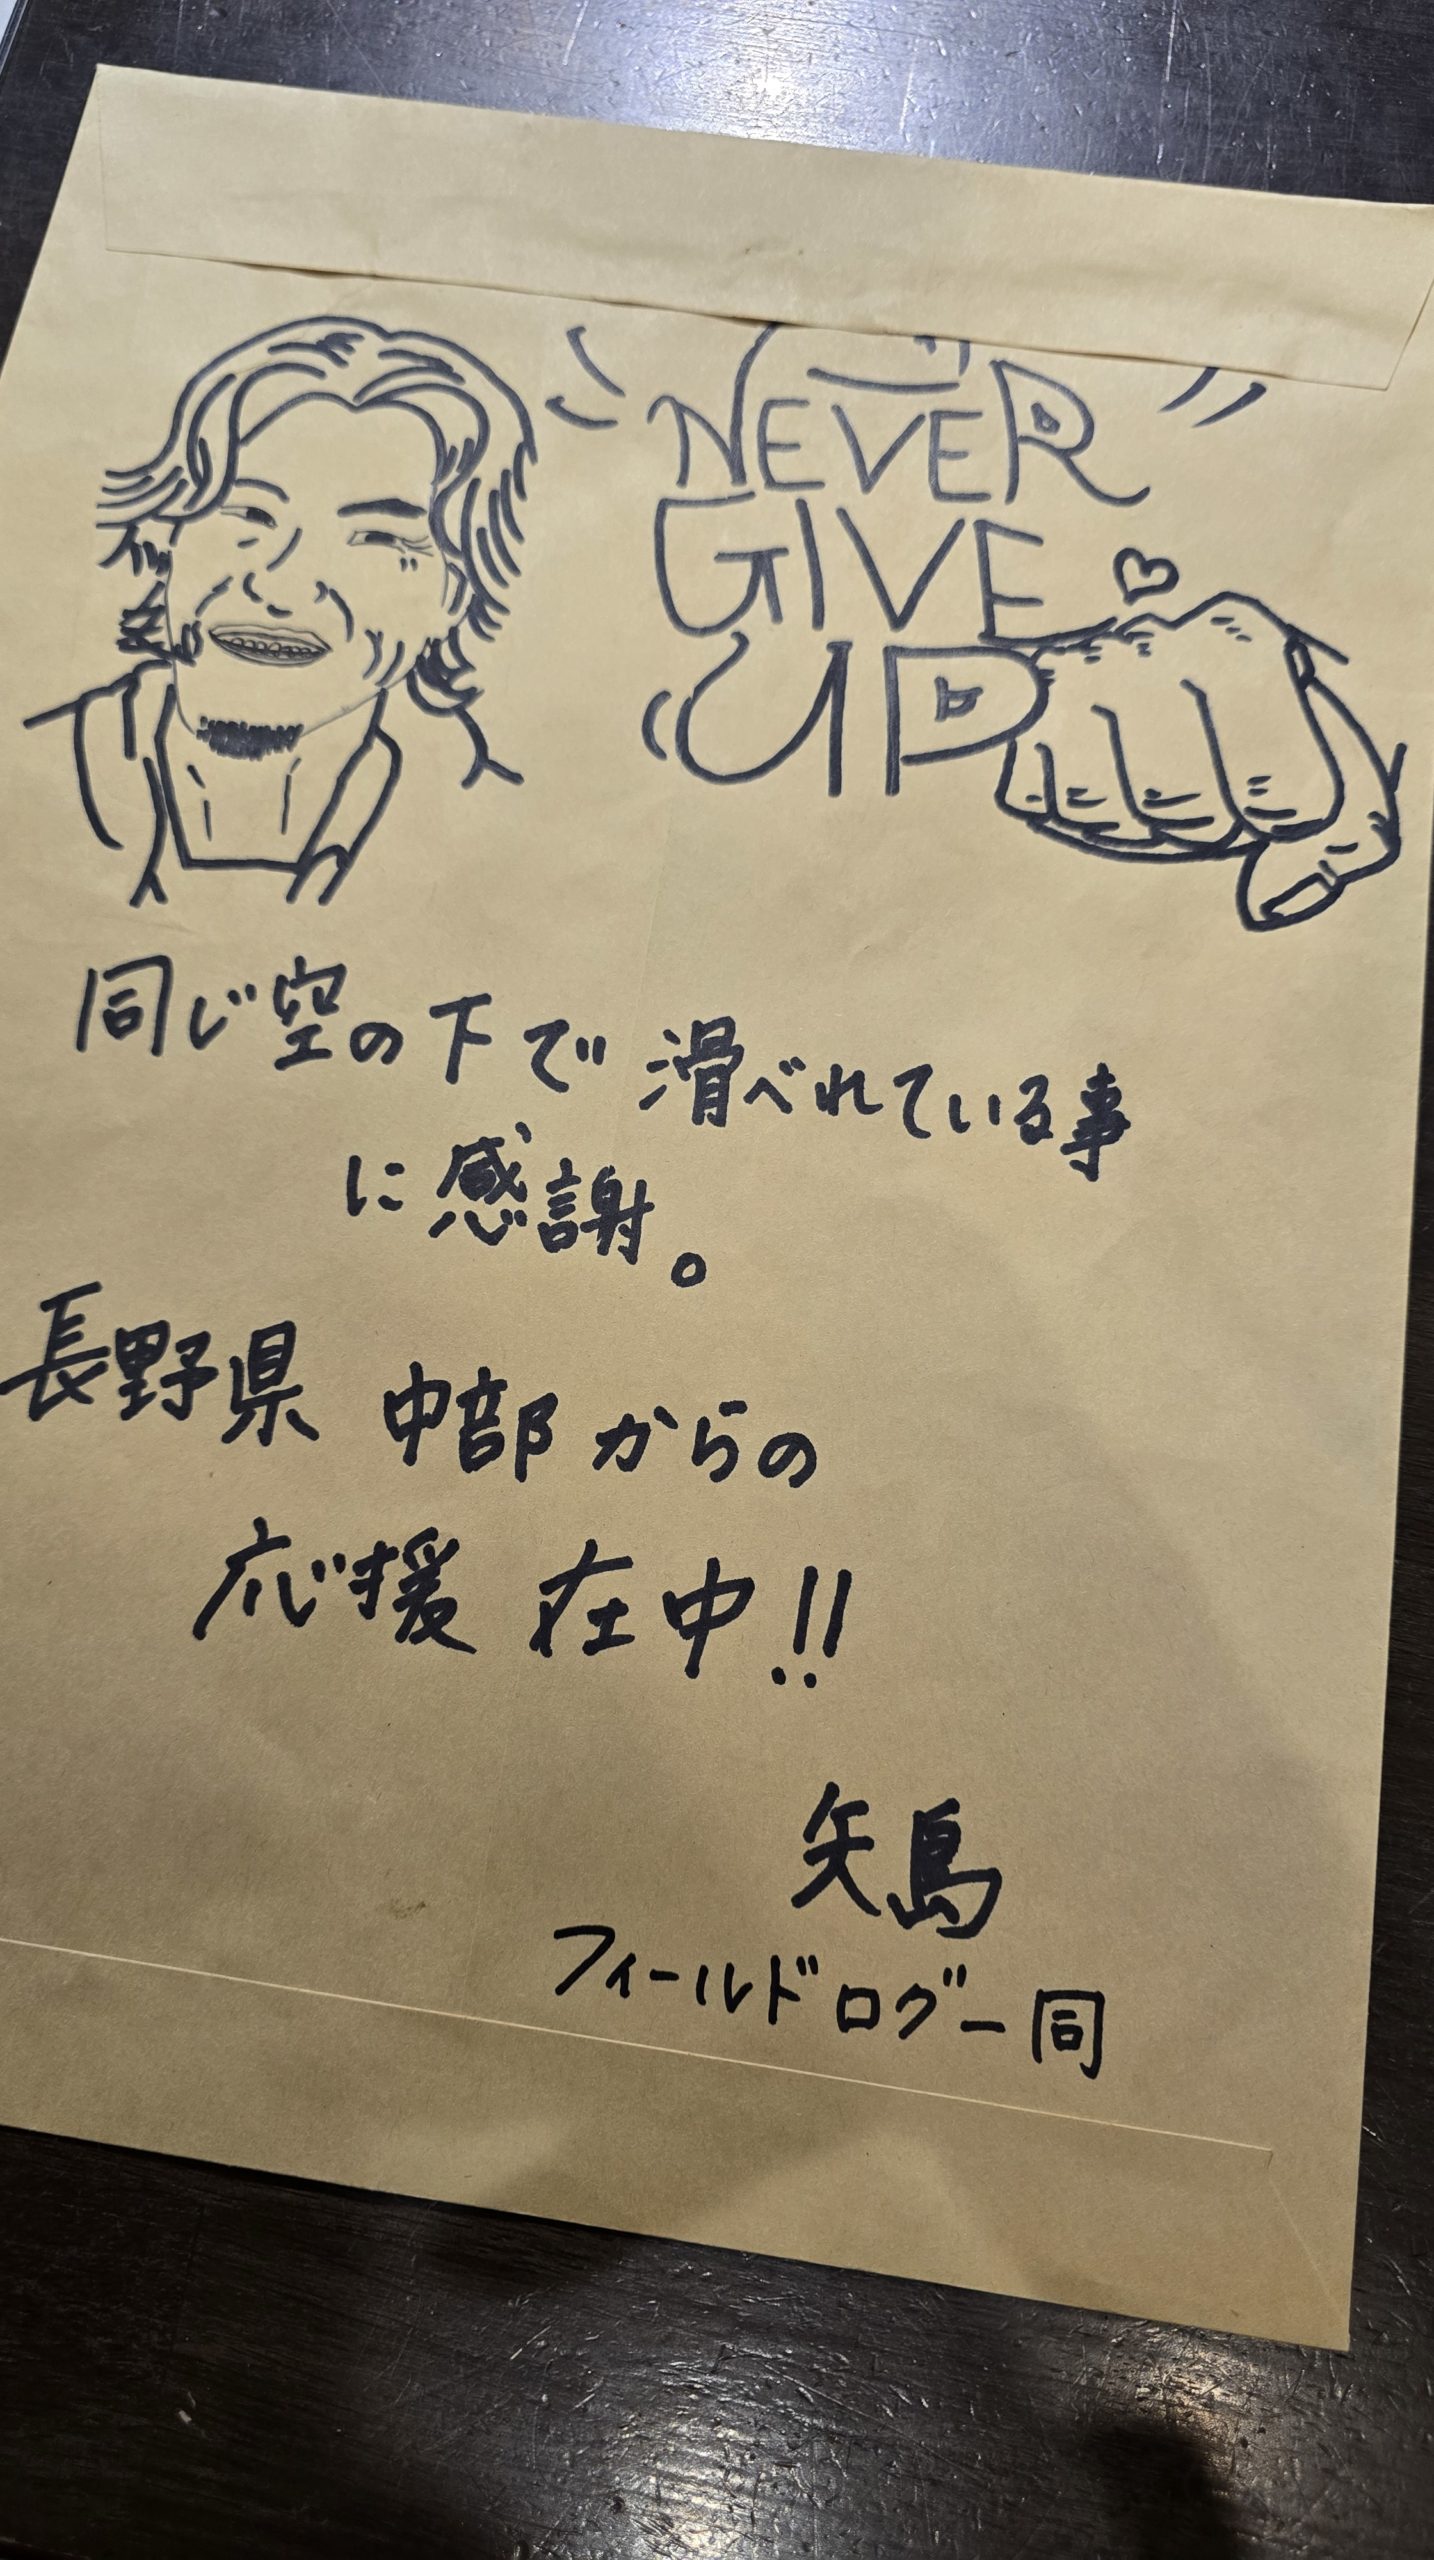 NEVER
GIVE
UP
同じ空の下で滑べれている事
に感謝。
長野県 中部からの
応援 在中!!
矢島
フィールドログ一同